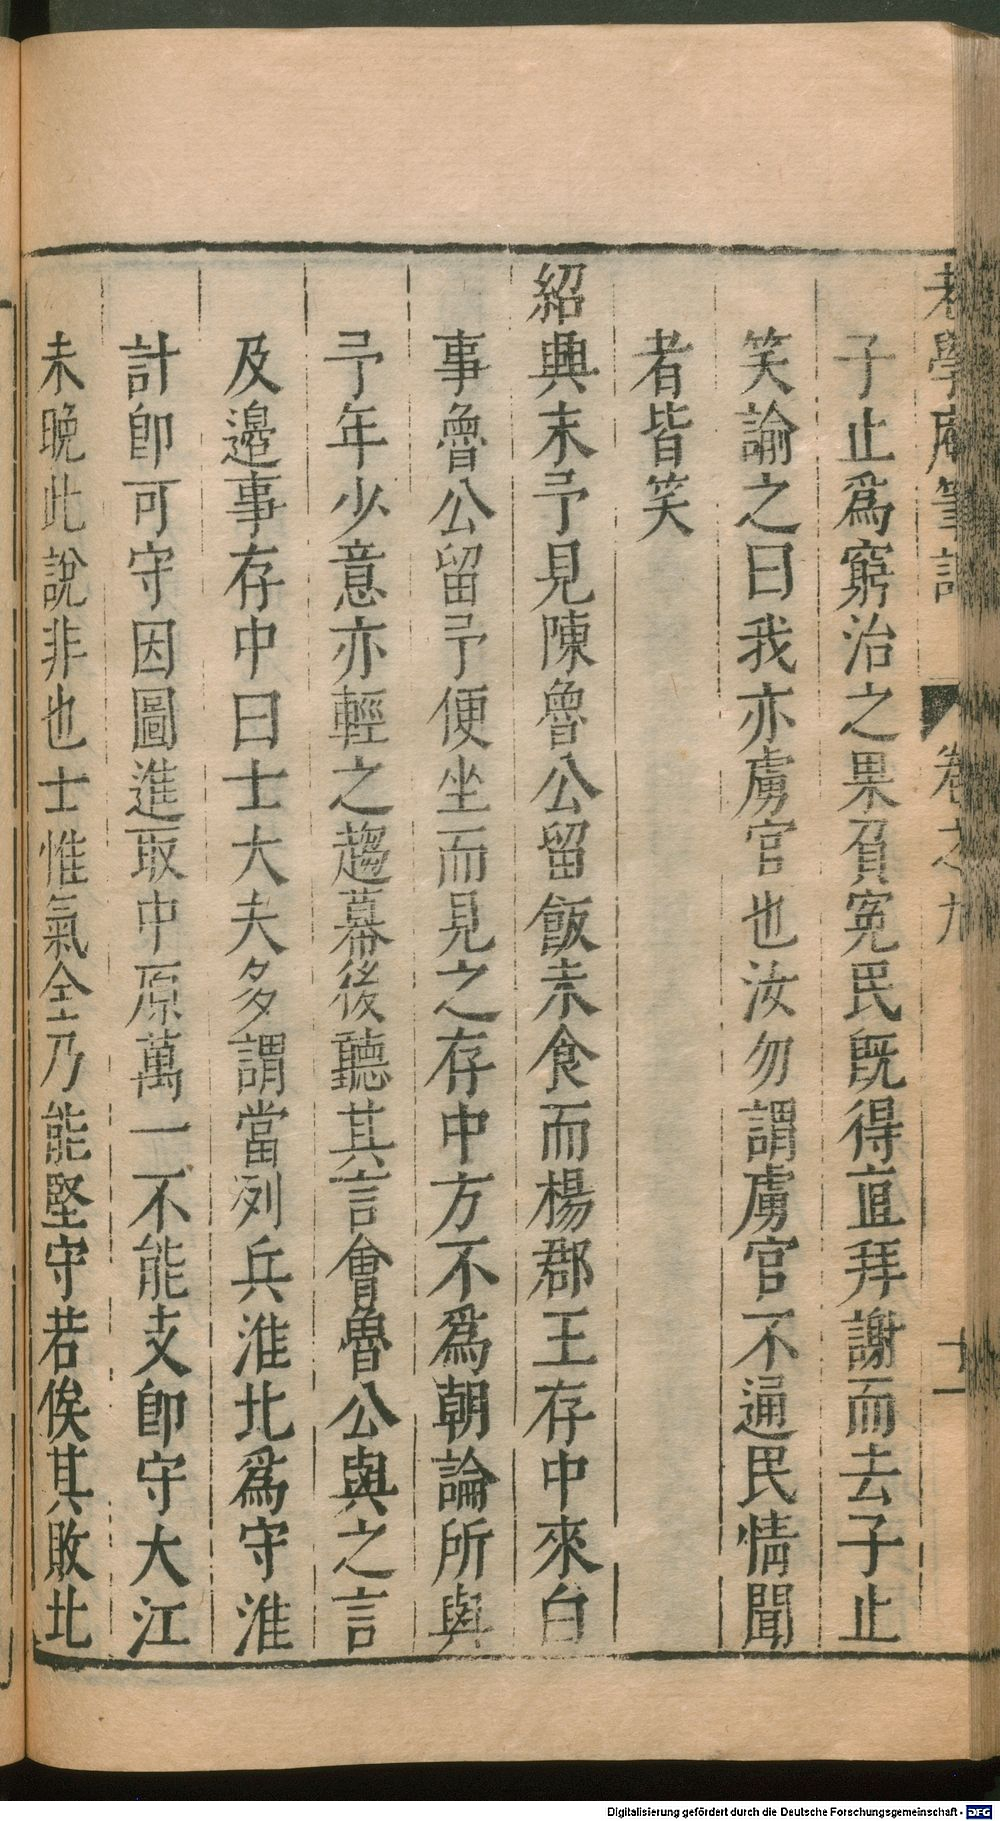 老學庵筆記 卷之九 十一
子止爲窮治之果負冤民既得直拜謝而去子止
笑諭之曰我亦虜官也汝勿謂虜官不通民情聞
者皆笑
紹興末予見陳魯公留飯未食而楊郡王存中來白
事魯公留予便坐而見之存中方不爲朝論所與
予年少意亦輕之趨幕後聽其言會魯公與之言
及邊事存中曰士大夫多謂當列兵淮北爲守淮
計卽可守因圖進取中原萬一不能支卽守大江
未晚此說非也士惟氣全乃能堅守若俟其敗北
Digitalisierung gefördert durch die Deutsche Forschungsgemeinschaft - DFG